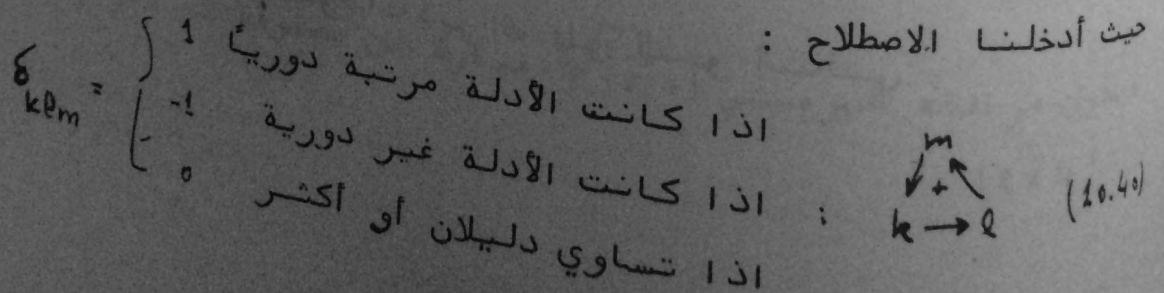 حيث أدخلنا الاصطلاح :
δ_klm = { 1 اذا كانت الأدلة مرتبة دورياً
-1 اذا كانت الأدلة غير دورية
0 اذا تساوي دليلان أو أكثر
: k → l m + (10.40)